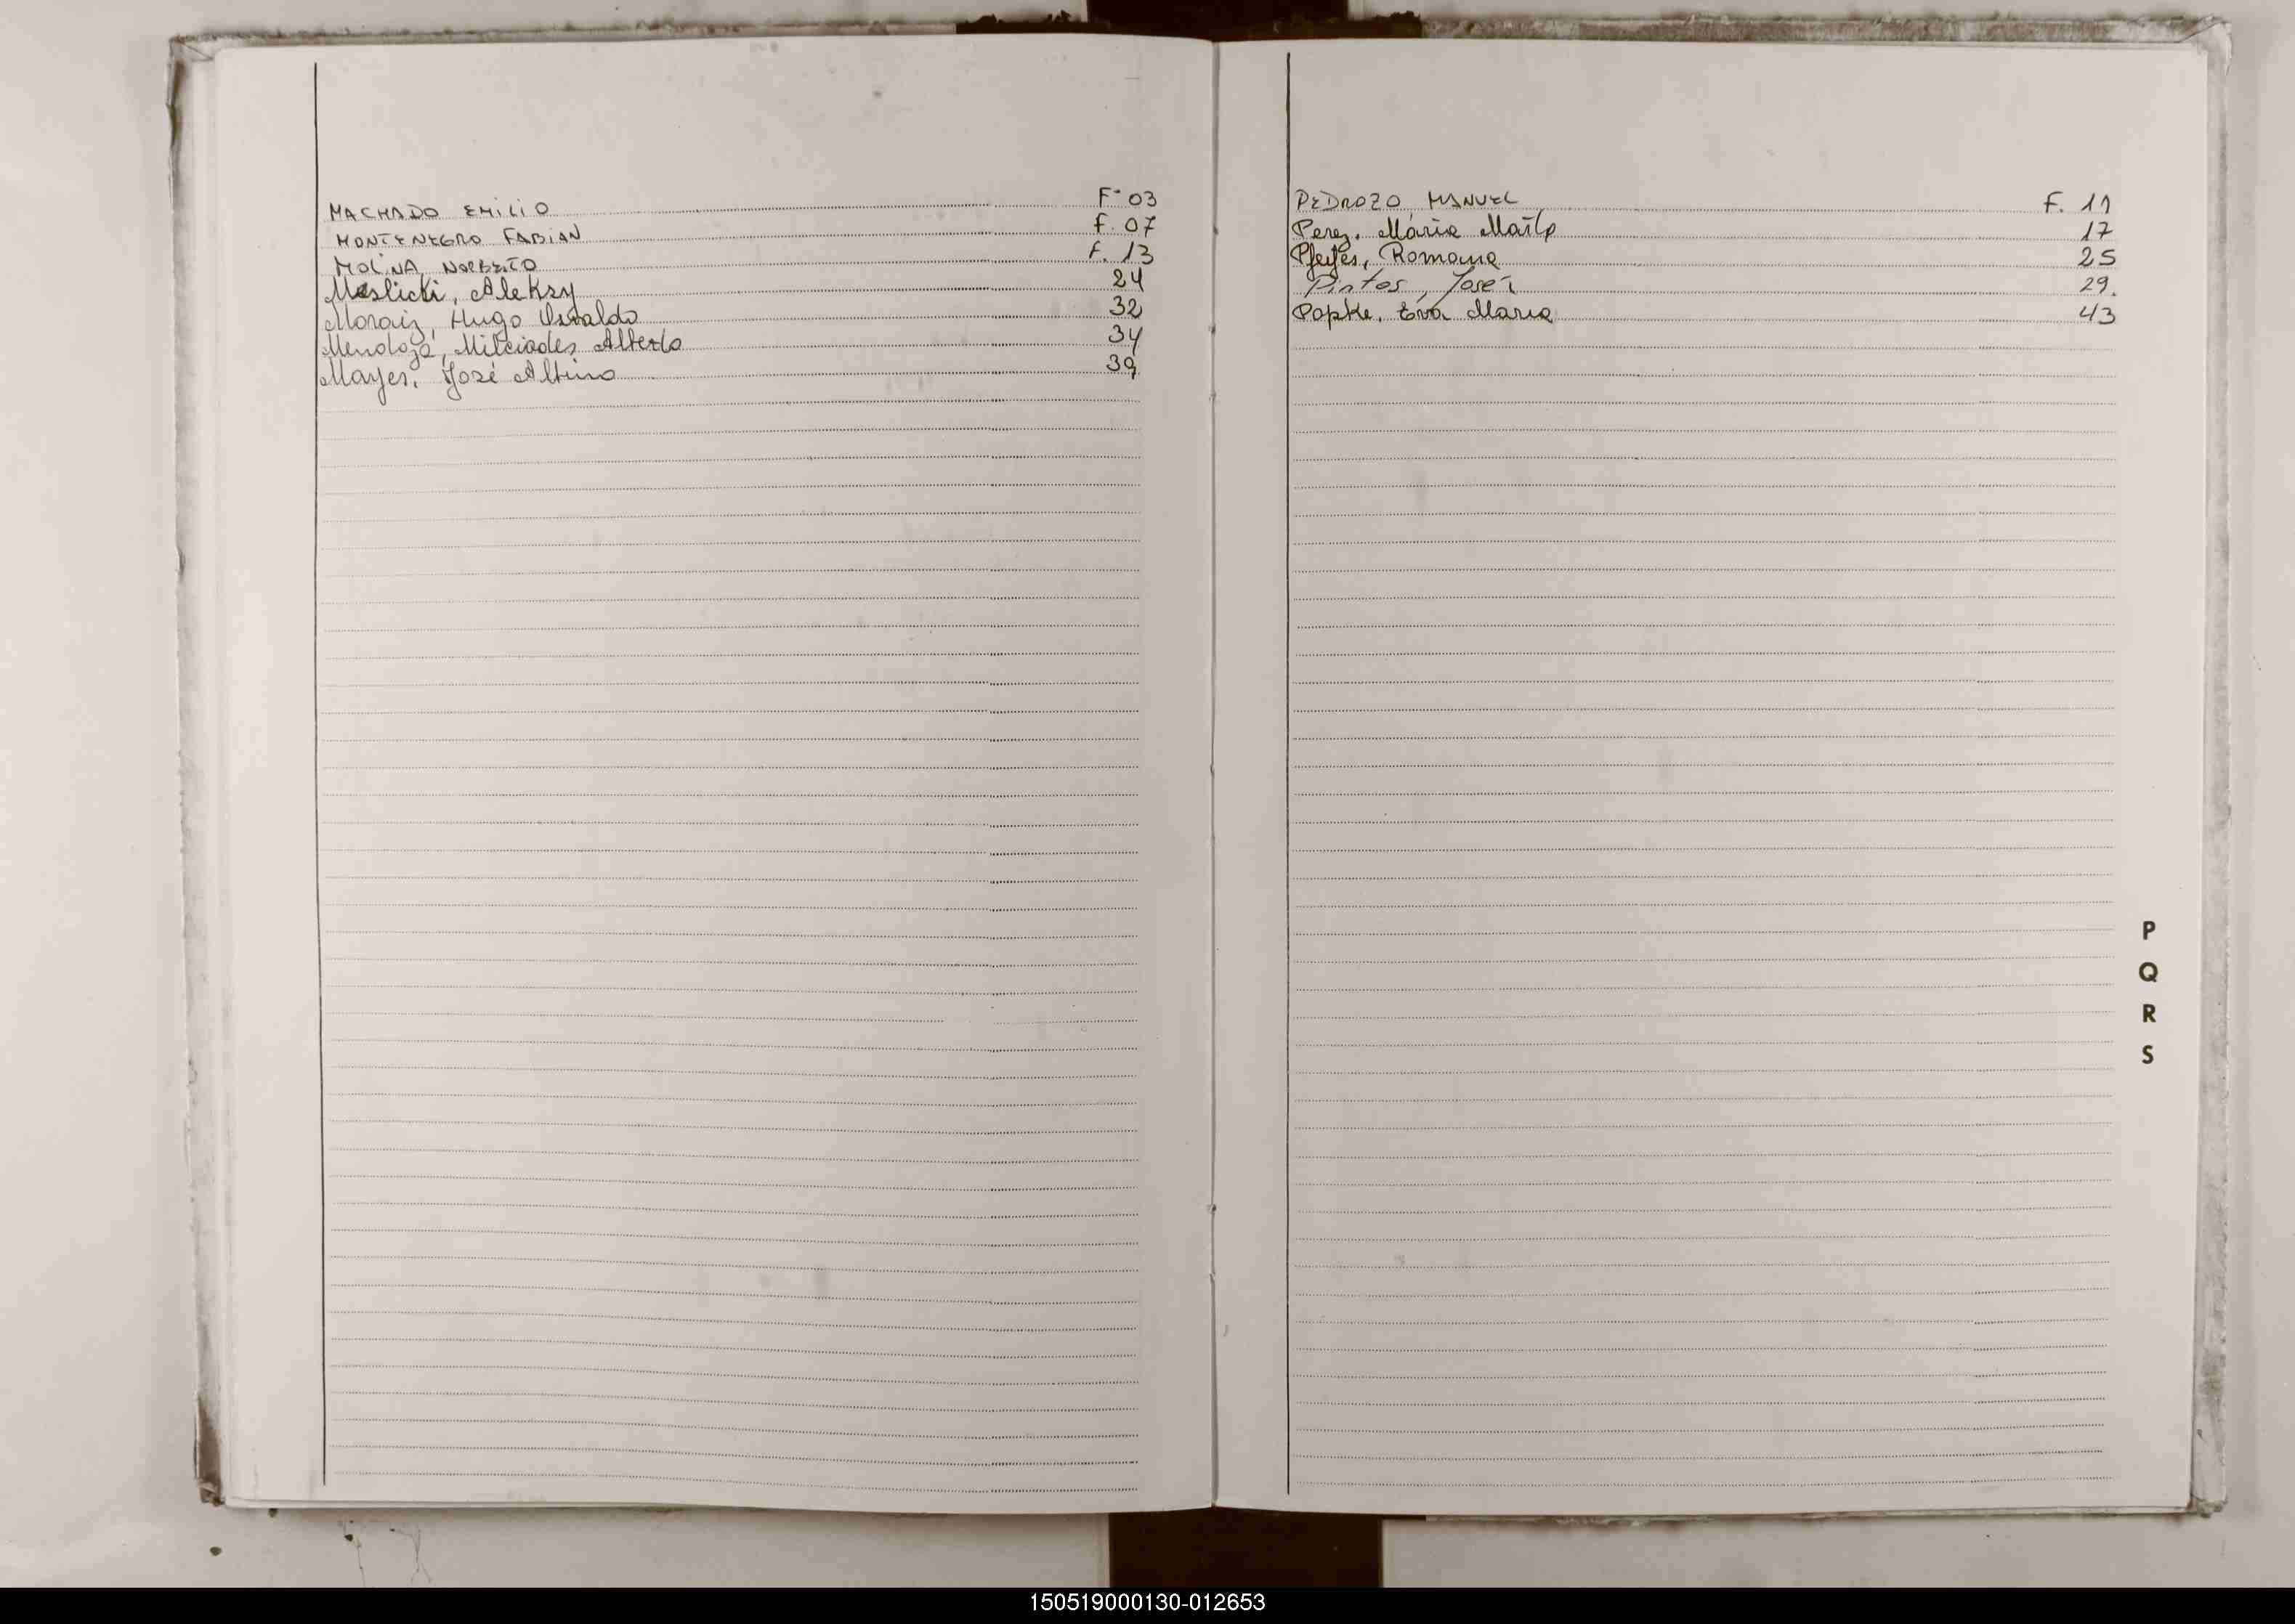 MACHADO EMILIO F° 03
MONTENEGRO FABIAN F. 07
MOLINA, NORBERTO F. 13
Maslicki, Aleksy 24
Moraiz, Hugo Osvaldo 32
Mendoza, Milciades Alberto 34
Mayer, José Altino 39
PEDROZO, MANUEL F. 11
Perez, Maria 17
Pfeifer, Romana 25
Pintos, José 29.
Popke, Eva Maria 43
P
Q
R
S
150519000130-012653